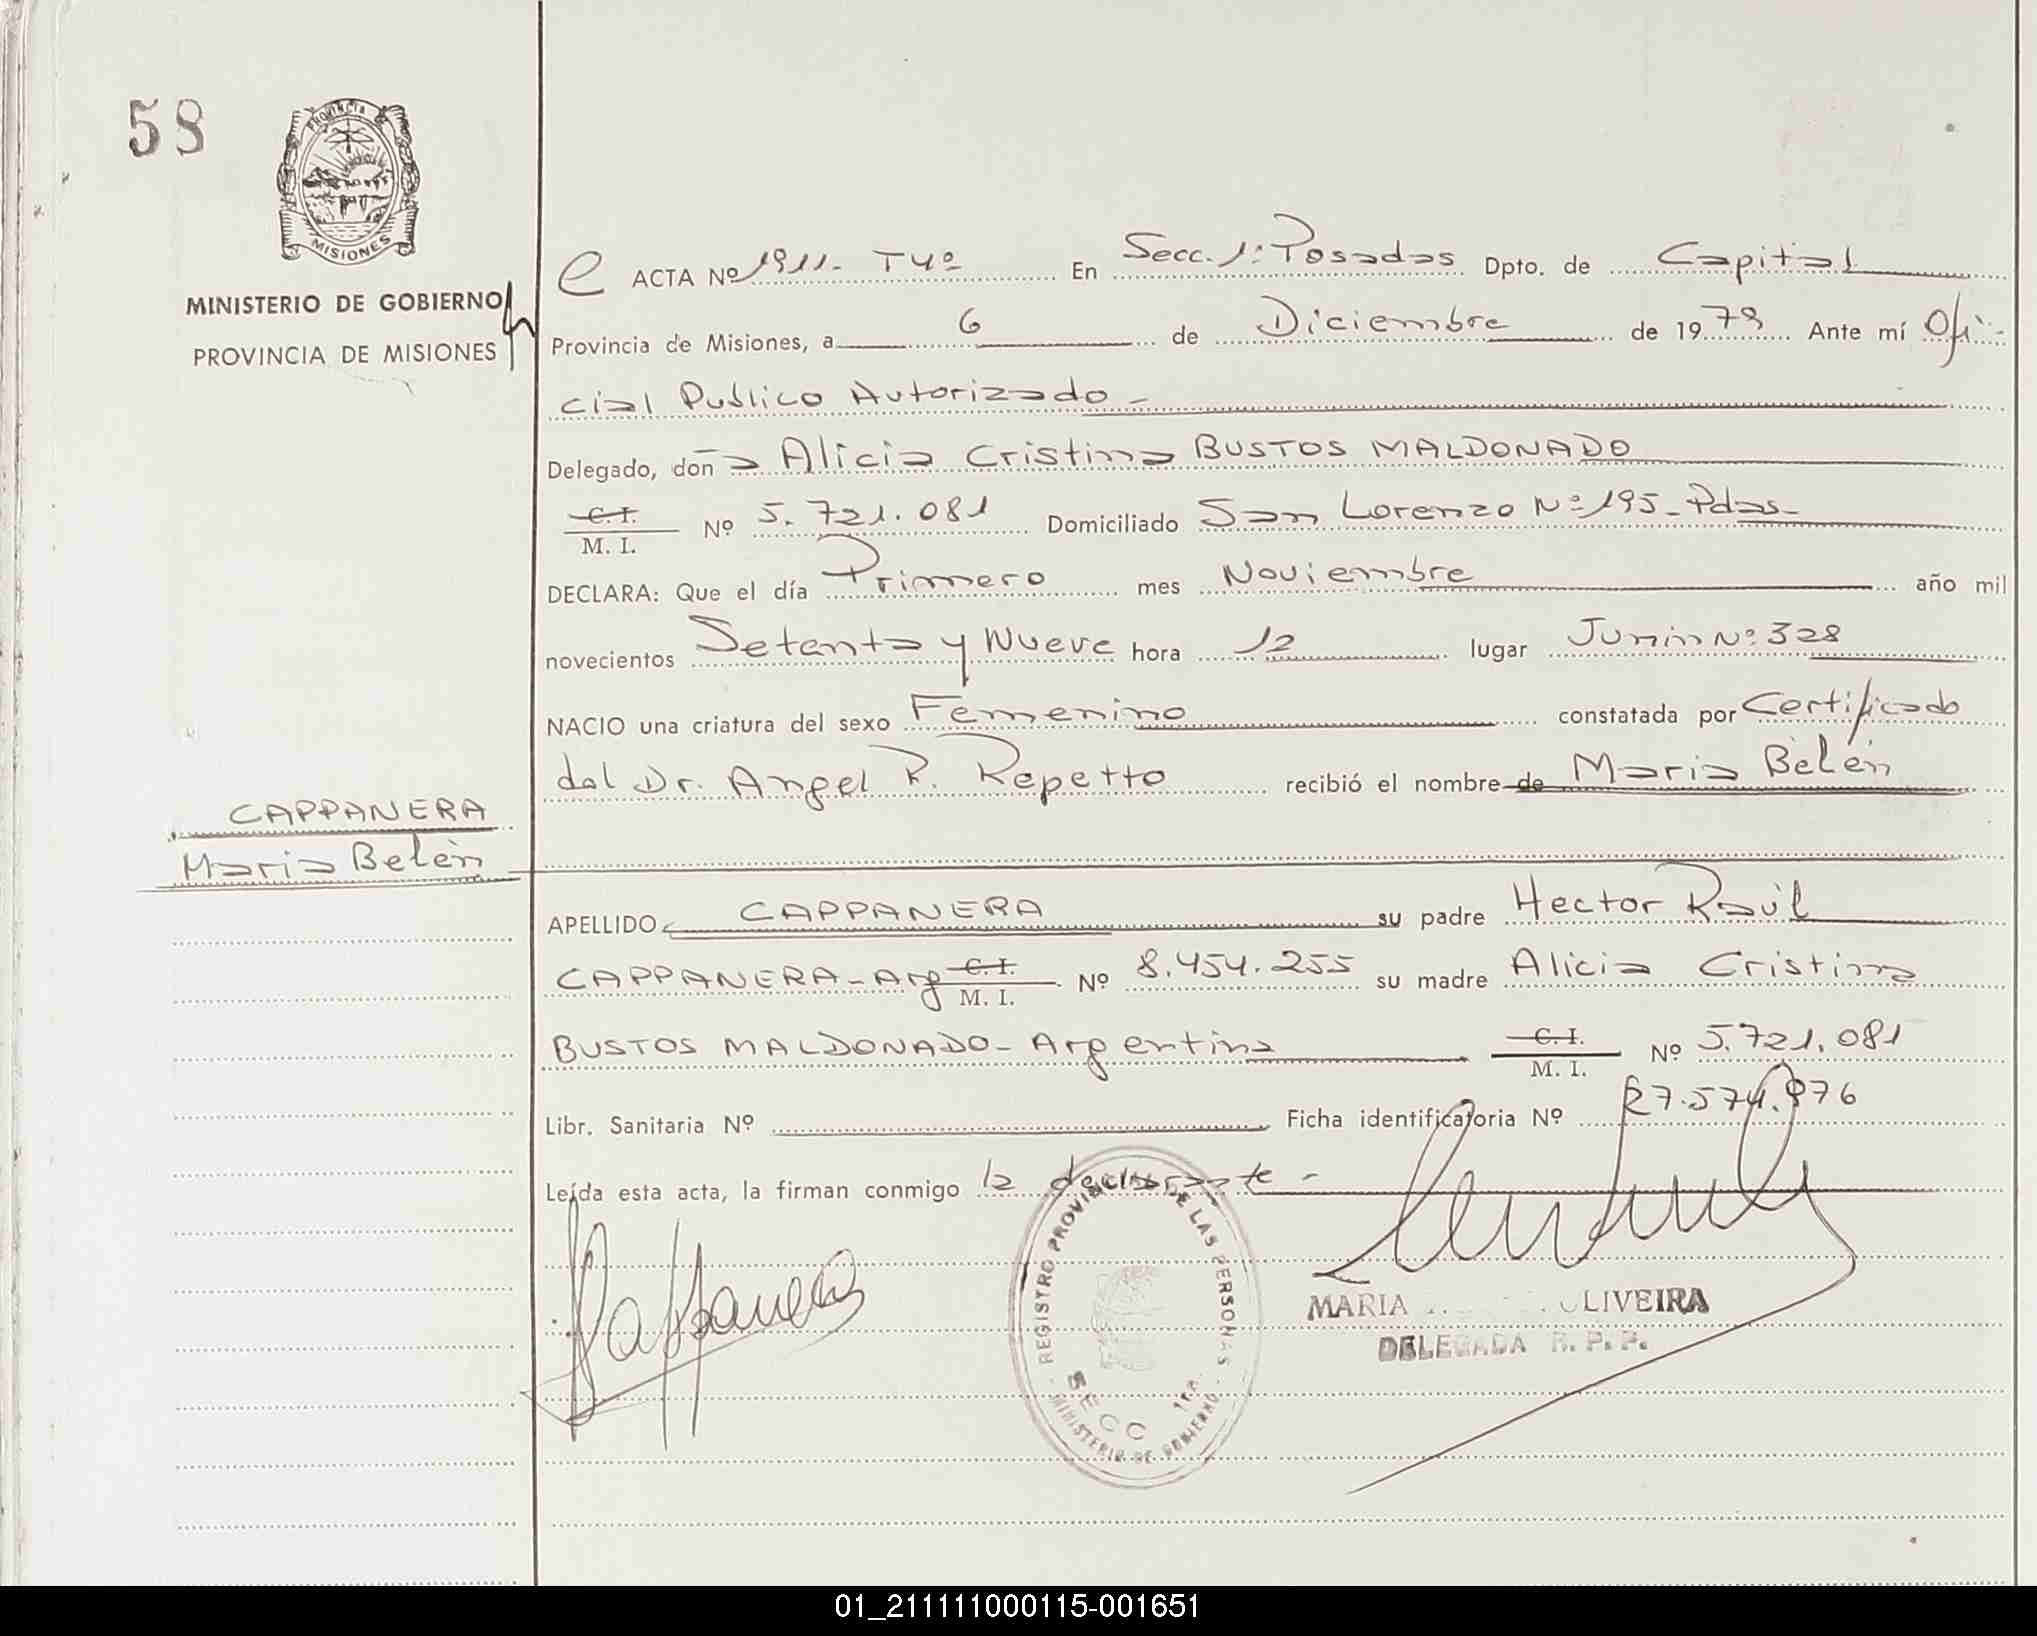 58
PROVINCIA
MISIONES
MINISTERIO DE GOBIERNO
PROVINCIA DE MISIONES
ACTA Nº 1911- T4º En Secc. 1ª Posadas Dpto. de Capital
Provincia de Misiones, a 6 de Diciembre de 1979 Ante mí Ofi-
cial Publico Autorizado -
Delegado, doña Alicia Cristina BUSTOS MALDONADO
C. I.
M. I. Nº 5.721.081 Domiciliado San Lorenzo Nº 195-Pdas-
DECLARA: Que el día Primero mes Noviembre año mil
novecientos Setenta y Nueve hora 12 lugar Junin Nº 328
NACIO una criatura del sexo Femenino constatada por Certificado
del Dr. Angel R. Repetto recibió el nombre de Maria Belén
CAPPANERA
Maria Belén
APELLIDO CAPPANERA su padre Hector Raúl
CAPPANERA-Arg C. I. M. I. Nº 8.454.255 su madre Alicia Cristina
BUSTOS MALDONADO- Argentina C. I. M. I. Nº 5.721.081
Libr. Sanitaria Nº Ficha identificatoria Nº 27.574.976
Leída esta acta, la firman conmigo la declarante -
REGISTRO PROVINCIAL DE LAS PERSONAS
SECC 1ra.
MINISTERIO DE GOBIERNO
Cappanera
MARIA OLIVEIRA
DELEGADA R. P. P.
01_211111000115-001651